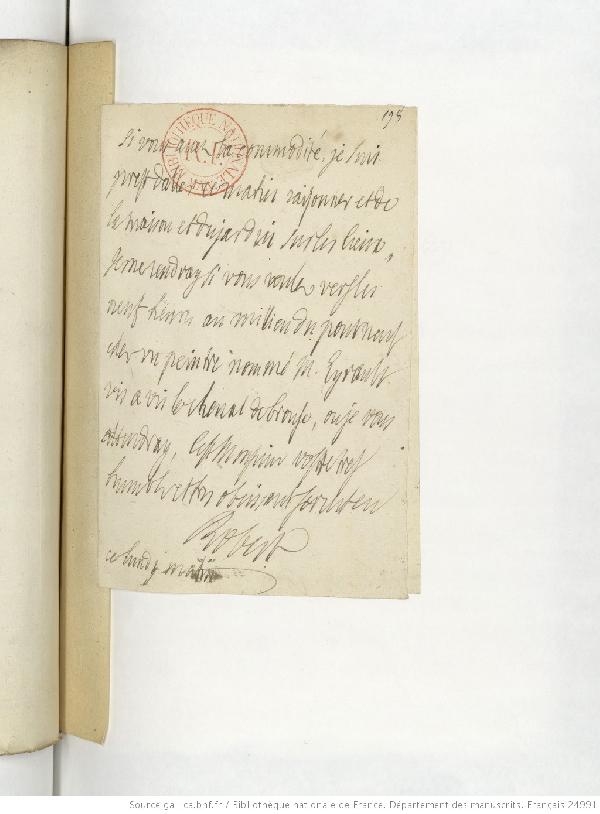 198
si vous avez la commodité, je suis
prest daller ce matin raisonner et de
la maison et du jardin sur les lieux,
je me rendray si vous voulez vers les
neuf heures au millieu du pont neuf
chez un peintre nommé M. Eyrault
vis a vis le cheval de bronse, ou je vous
attendray, Monsieur vostre tres
humble et tres obeissant serviteur
Robert
ce lundy matin
BIBLIOTHÈQUE NATIONALE
Source gallica.bnf.fr / Bibliothèque nationale de France. Département des manuscrits. Français 24991